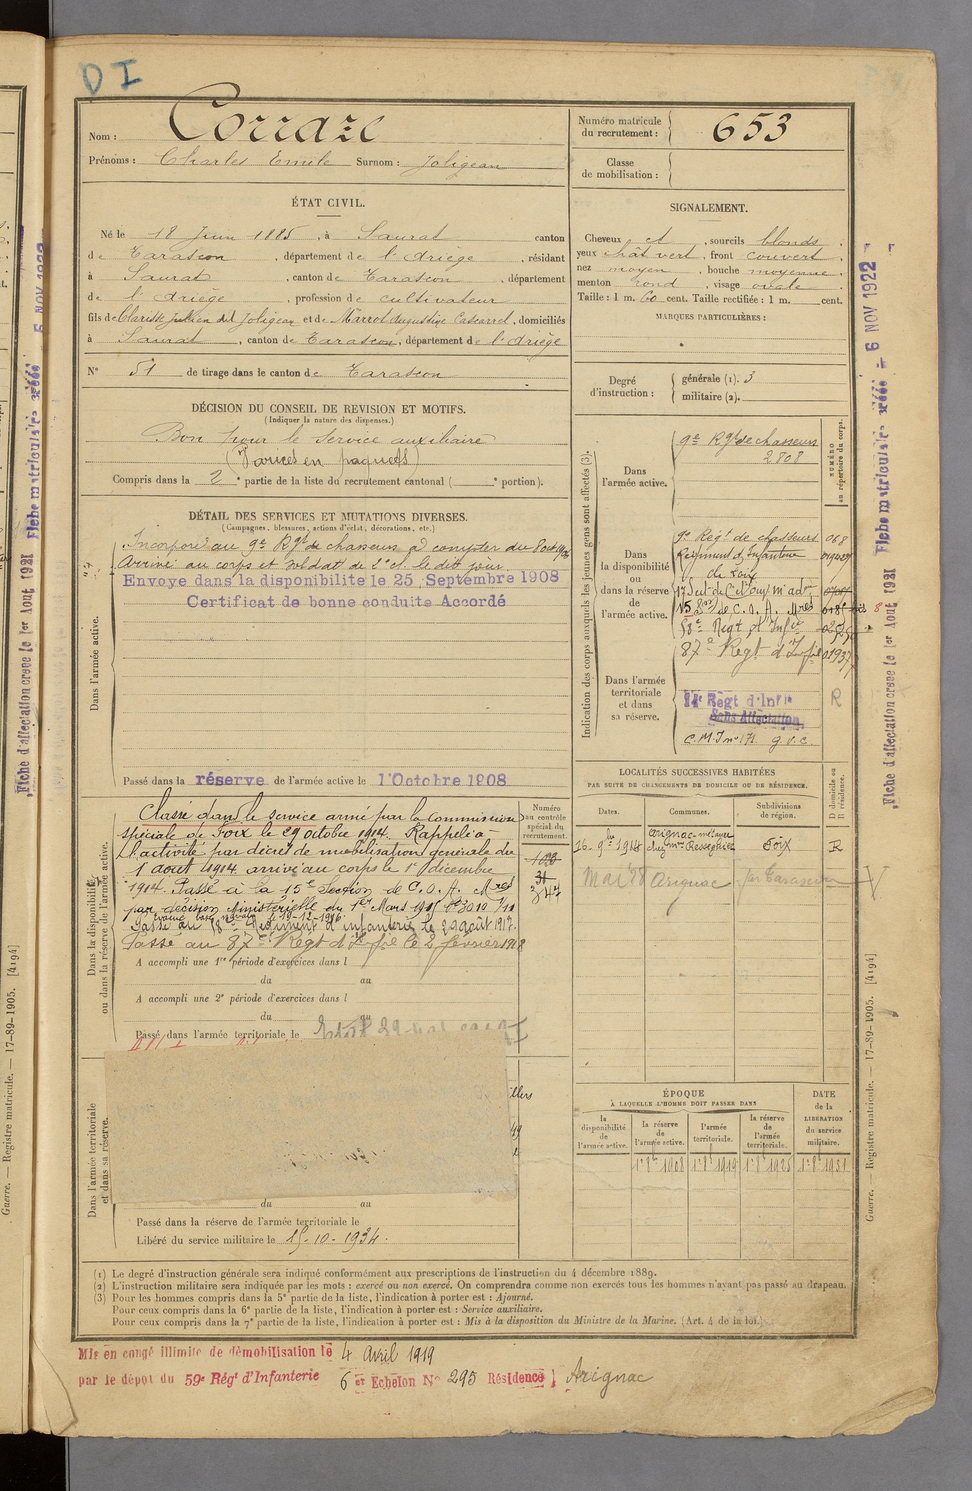 DI
Nom : Corraze
Prénoms : Charles Emile Surnom : Joligean
ÉTAT CIVIL.
Né le 18 Juin 1885, à Saurat canton
de Tarascon, département de l'Ariège, résidant
à Saurat, canton de Tarascon, département
de l'Ariège, profession de cultivateur
fils de Clarisse Julien dit Joligean et de Marrot Augustine, domiciliés
à Saurat, canton de Tarascon, département de l'Ariège
N° 51 de tirage dans le canton de Tarascon
DÉCISION DU CONSEIL DE REVISION ET MOTIFS.
(Indiquer la nature des dispenses.)
Bon pour le service auxiliaire
(Varices en paquets)
Compris dans la 2e partie de la liste du recrutement cantonal ( e portion).
DÉTAIL DES SERVICES ET MUTATIONS DIVERSES.
(Campagnes, blessures, actions d'éclat, décorations, etc.)
Dans l'armée active.
Incorporé au 9e Rgt de chasseurs à compter du
Arrivé au corps et soldat de 2e cl. le dit jour.
Envoyé dans la disponibilité le 25 Septembre 1908
Certificat de bonne conduite Accordé
Passé dans la réserve de l'armée active le 1 Octobre 1908
Dans la disponibilité
ou dans la réserve de l'armée active.
Classé dans le service armé par la Commission
spéciale de Foix le 29 octobre 1914. Rappelé à
l'activité par décret de mobilisation générale du
1 aout 1914. arrivé au corps le 1 décembre
1914. Passé à la 15e Section de C.O.A. Mres
par décision Ministérielle du 1er Mars
Passé au 18e Régiment d'infanterie le 29 août 1917.
Passé au 87e Regt d'Infie le 2 février 1918
Numéro
au contrôle
spécial du
recrutement.
31
347
A accompli une 1re période d'exercices dans l
du au
A accompli une 2e période d'exercices dans l
du au
Passé dans l'armée territoriale le
Dans l'armée territoriale
et dans sa réserve.
illers
du au
Passé dans la réserve de l'armée territoriale le
Libéré du service militaire le 15-10-1934.
Numéro matricule
du recrutement : 653
Classe
de mobilisation :
SIGNALEMENT.
Cheveux ct, sourcils blonds,
yeux chât vert, front couvert,
nez moyen, bouche moyenne,
menton rond, visage ovale.
Taille : 1 m. 60 cent. Taille rectifiée : 1 m. cent.
MARQUES PARTICULIÈRES :
Degré
d'instruction :
générale (1). 3
militaire (2).
Indication des corps auxquels les jeunes gens sont affectés (3).
NUMÉRO
au répertoire du corps.
Dans
l'armée active.
9e Rgt de chasseurs
2808
Dans
la disponibilité
ou
dans la réserve
de
l'armée active.
9e Regt de chasseurs 068
Régiment d'Infanterie
de Foix
15 Son de C.O.A. Mres
18e Regt d'Infie
87e Regt d'Infie 01937
Dans l'armée
territoriale
et dans
sa réserve.
14e Regt d'Infie R
Sans Affectation
C.M.I n° 171. g.v.c.
LOCALITÉS SUCCESSIVES HABITÉES
PAR SUITE DE CHANGEMENTS DE DOMICILE OU DE RÉSIDENCE.
Dates. Communes. Subdivisions
de région. D domicile ou
R résidence.
26-9bre 1914 Arignac Foix R
Mai 28 Arignac par Tarascon
ÉPOQUE
À LAQUELLE L'HOMME DOIT PASSER DANS
DATE
de la
LIBÉRATION
du service
militaire.
la
disponibilité
de
l'armée active.
la réserve
de
l'armée active.
l'armée
territoriale.
la réserve
de
l'armée
territoriale.
1er 8bre 1908 1er 8bre 1919 1er 8bre 1925 1er 8bre 1931
(1) Le degré d'instruction générale sera indiqué conformément aux prescriptions de l'instruction du 4 décembre 1889.
(2) L'instruction militaire sera indiquée par les mots : exercé ou non exercé. On comprendra comme non exercés tous les hommes n'ayant pas passé au drapeau.
(3) Pour les hommes compris dans la 5e partie de la liste, l'indication à porter est : Ajourné.
Pour ceux compris dans la 6e partie de la liste, l'indication à porter est : Service auxiliaire.
Pour ceux compris dans la 7e partie de la liste, l'indication à porter est : Mis à la disposition du Ministre de la Marine. (Art. 4 de la loi.)
Mis en congé illimité de démobilisation le 4 Avril 1919
par le dépôt du 59e Régt d'Infanterie 6 er Echelon N° 295 Résidence Arignac
Fiche d'affectation créée le 1er Aout 1921
Fiche matriculaire créée 6 NOV 1922
Guerre. — Registre matricule. — 17-89-1905. [4194]
Fiche d'affectation créée le 1er Aout 1921
Fiche matriculaire créée - 6 NOV 1922
Guerre. — Registre matricule. — 17-89-1905. [4194]